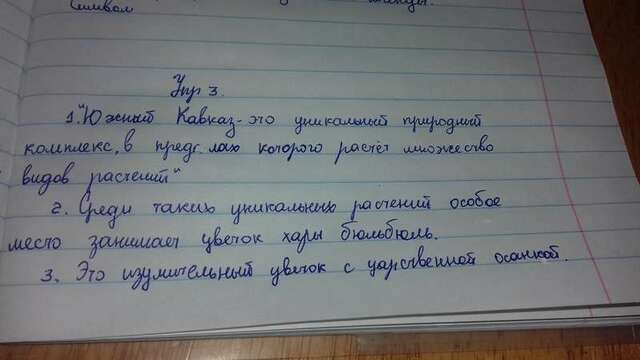 Символ легенды.
Упр 3.
1. "Южный Кавказ - это уникальный природный
комплекс, в пределах которого растёт множество
видов растений"
2. Среди таких уникальных растений особое
место занимает цветок хары бюльбюль.
3. Это изумительный цветок с царственной осанкой.